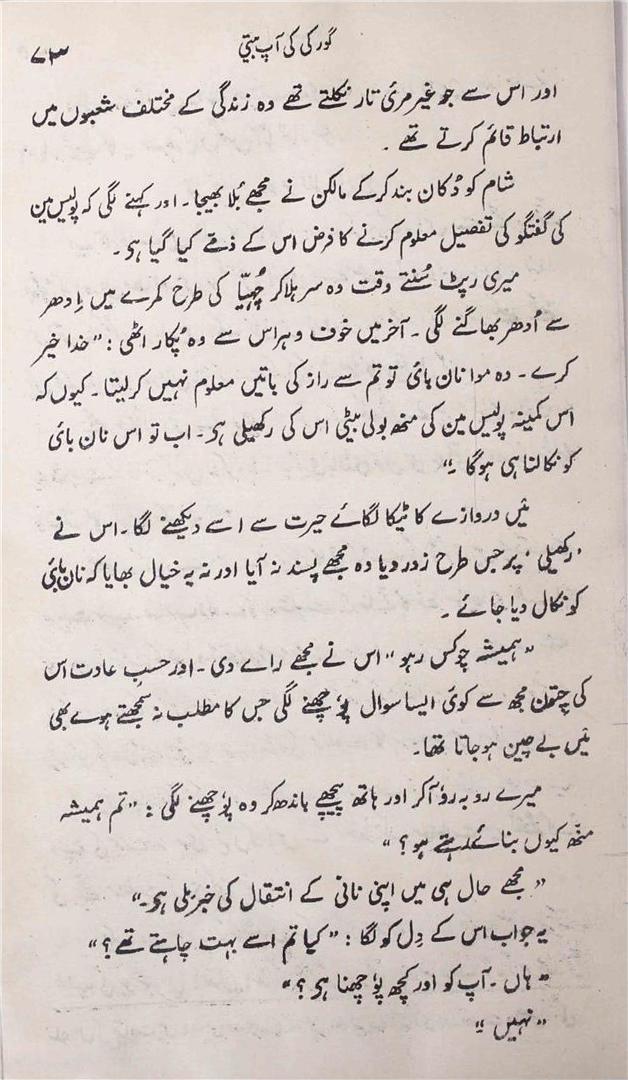 گورکی کی آپ بیتی ۷۳
اور اس سے جو غیر مرئ تار نکلتے تھے وہ زندگی کے مختلف شعبوں میں
ارتباط قائم کرتے تھے ۔
شام کو دُکان بند کرکے مالکن نے مجھے بُلا بھیجا ۔ اور کہنے لگی کہ پولیس مین
کی گفتگو کی تفصیل معلوم کرنے کا فرض اس کے ذمّے کیا گیا ہی ۔
میری رپٹ سُنتے وقت وہ سر ہلا کر چُہیّا کی طرح کمرے میں اِدھر
سے اُدھر بھاگنے لگی ۔ آخر میں خوف و ہراس سے وہ پُکار اٹھی : ”خدا خیر
کرے ۔ وہ موا نان بائ تو تم سے راز کی باتیں معلوم نہیں کرلیتا ۔ کیوں کہ
اس کمینہ پولیس مین کی منھ بولی بیٹی اس کی رکھیلی ہی ۔ اب تو اس نان بائ
کو نکالنا ہی ہوگا ۔“
مَیں دروازے کا ٹیکا لگائے حیرت سے اسے دیکھنے لگا ۔ اس نے
’رکھیلی‘ پر جس طرح زور دیا وہ مجھے پسند نہ آیا اور نہ یہ خیال بھایا کہ نان بائ
کو نکال دیا جائے ۔
”ہمیشہ چوکس رہو“ اس نے مجھے راے دی ۔ اور حسبِ عادت اس
کی چتون مجھ سے کوئ ایسا سوال پؤچھنے لگی جس کا مطلب نہ سمجھتے ہوے بھی
مَیں بے چین ہو جاتا تھا ۔
میرے رو بہ رؤ آکر اور ہاتھ پیچھے باندھ کر وہ پؤچھنے لگی : ”تم ہمیشہ
منّھ کیوں بنائے رہتے ہو ؟“
”مجھے حال ہی میں اپنی نانی کے انتقال کی خبر ملی ہی ۔“
یہ جواب اس کے دِل کو لگا : ”کیا تم اسے بہت چاہتے تھے ؟“
”ہاں ۔ آپ کو اور کچھ پؤچھنا ہی ؟“
”نہیں ۔“